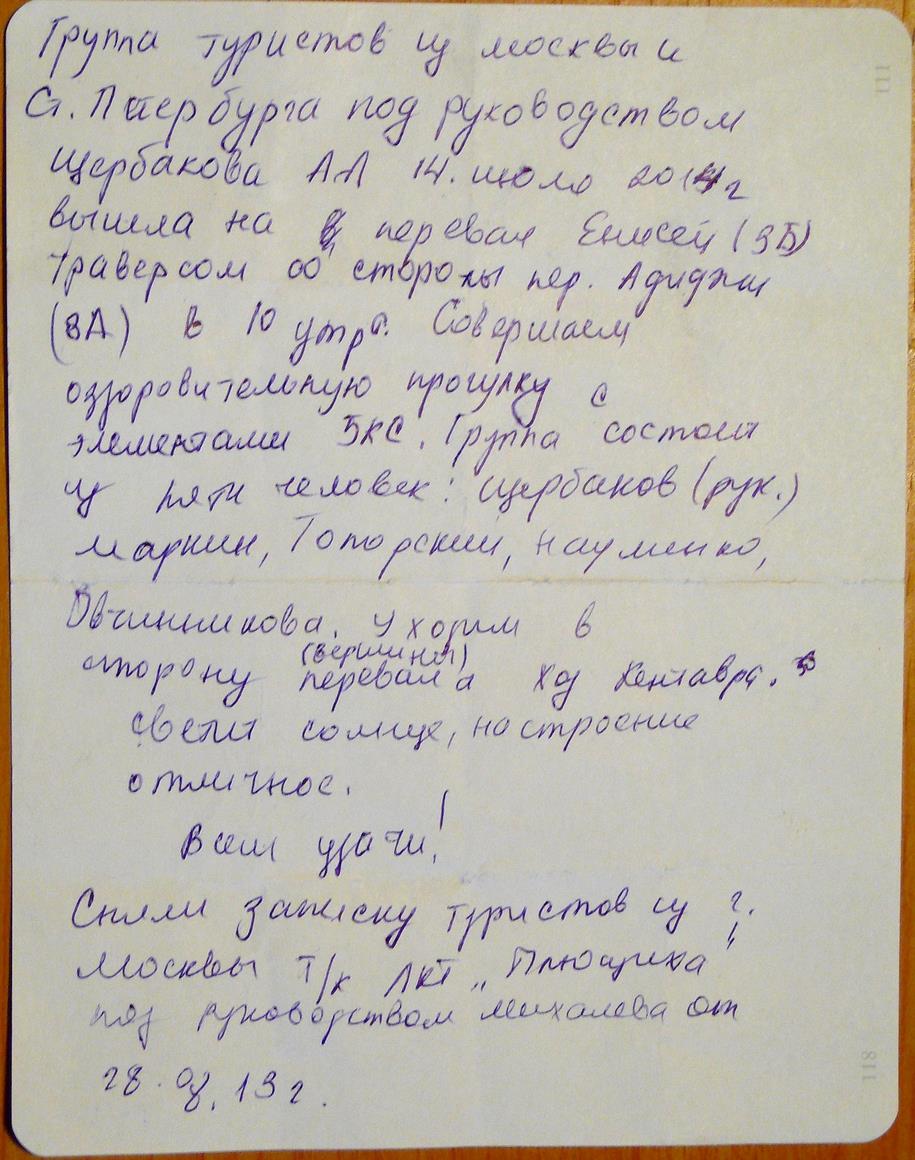 Группа туристов из Москвы и
Ст. Петербурга под руководством
Щербакова АА 14. июля 2014г
вышла на перевал Енисей (3Б)
траверсом со стороны пер. Адиджи
(3А) в 10 утра. Совершаем
оздоровительную прогулку с
элементами 5кс. Группа состоит
из пяти человек: Щербаков (рук.)
Маркин, Топорский, Науменко,
Овчинникова. Уходим в
сторону перевала (вершины) Ход Кентавра.
Светит солнце, настроение
отличное.
Всем удачи!
Сняли записку туристов из г.
Москвы Т/к ЛКТ „Плющиха"
под руководством Михалева от
28.08.13г.
111
118